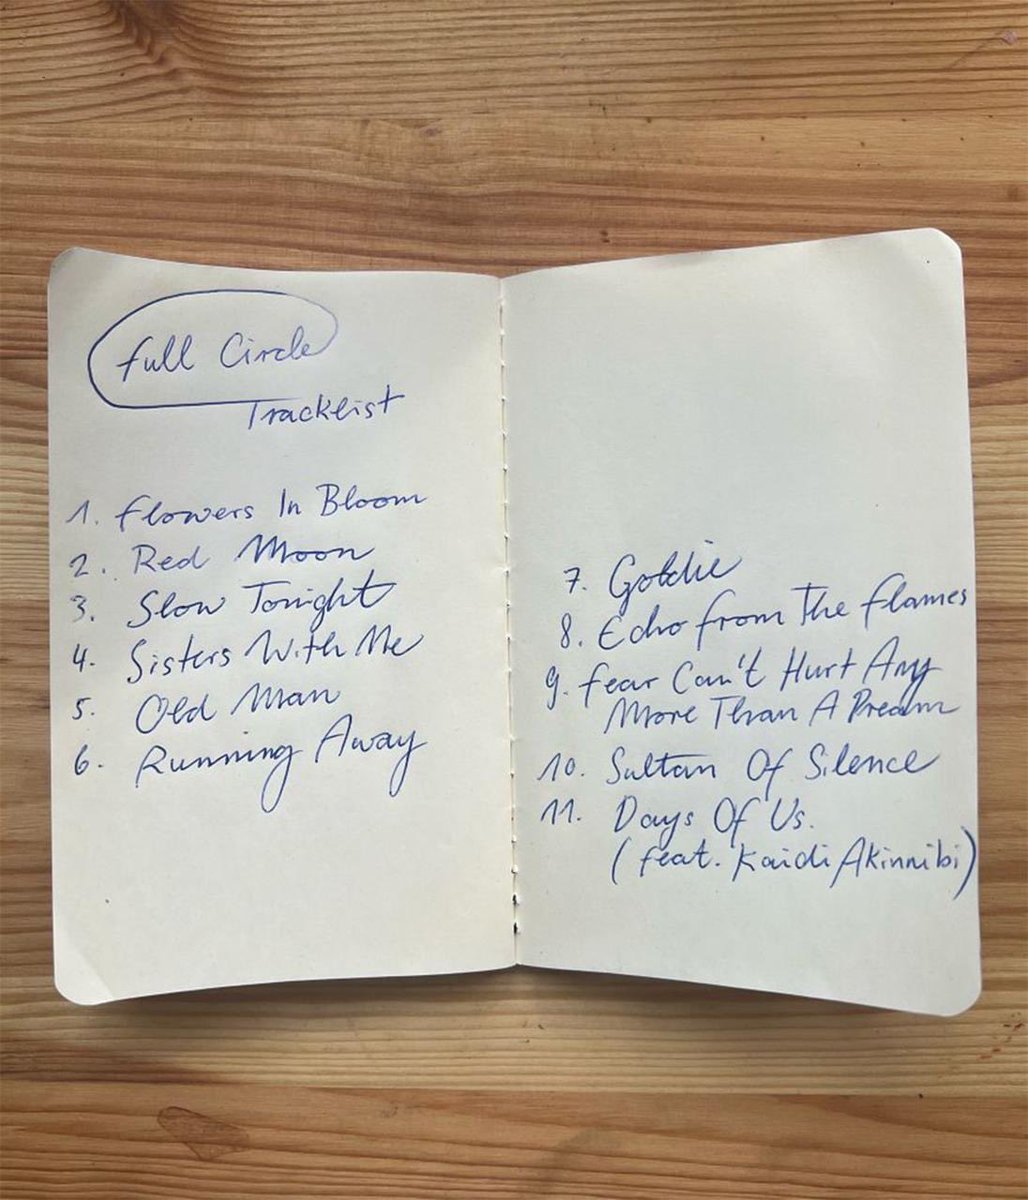 Full Circle
Tracklist
1. Flowers In Bloom
2. Red Moon
3. Slow Tonight
4. Sisters With Me
5. Old Man
6. Running Away
7. Goldie
8. Echo From The Flames
9. Fear Can't Hurt Any
More Than A Dream
10. Sultan Of Silence
11. Days Of Us.
(feat. Kaidi Akinnibi)